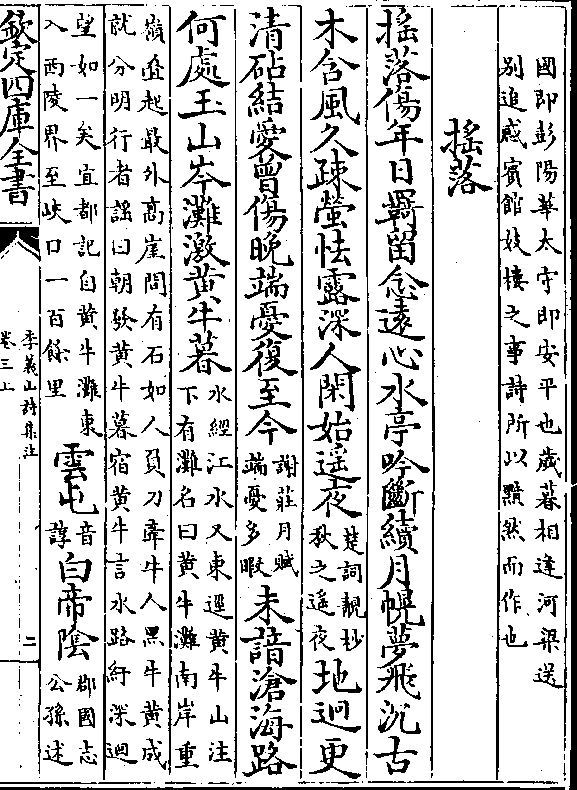 國即彭陽華太守即安平也歲暮相違河梁送
别追感賓館妓樓之事詩所以黯然而作也
搖落
搖落傷年日羈留念逺心水亭吟斷續月幌夢飛沉古
木含風久疎螢怯露深人閑始遥夜
楚詞靚杪
秋之遥夜
地迥更
清砧結愛曽傷晚端憂復至今
謝莊月賦
端憂多暇
未諳滄海路
何處玉山岑灘激黄牛暮
水經江水又東逕黄牛山注
下有灘名曰黄牛灘南岸重
嶺疊起最外髙崖間有石如人負刀牽牛人黒牛黄成
就分明行者謡曰朝發黄牛暮宿黄牛言水路紆深迴
望如一矣宜都記自黄牛灘東
入西陵界至峽口一百餘里
雲屯
音
諄
白帝陰
郡國志
公孫述
欽定四庫全書
李義山詩集注
卷三上
二